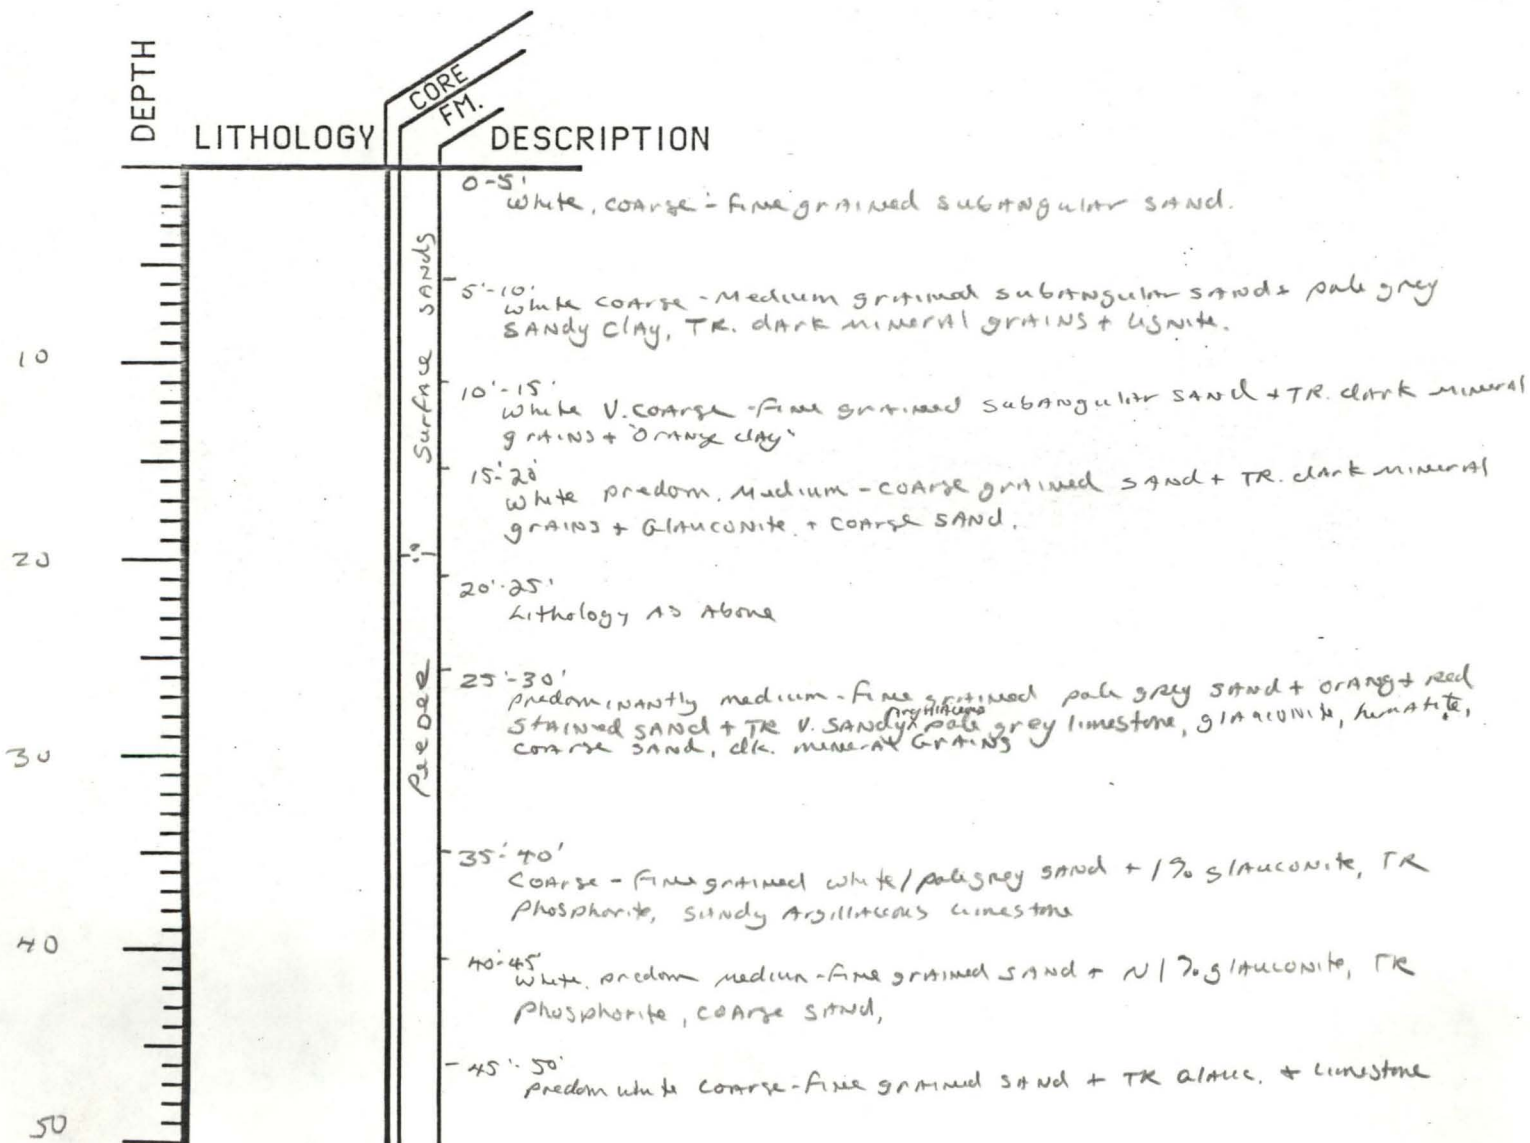 DEPTH
LITHOLOGY
CORE
FM.
DESCRIPTION
0-5'
White, coarse - fine grained subangular sand.
5'-10'
White coarse - medium grained subangular sand + pale grey
sandy clay, TR. dark mineral grains + lignite.
10
10'-15'
White V. coarse - fine grained subangular sand + TR. dark mineral
grains + "orange clay"
Surface sands
15'-20'
White predom. medium - coarse grained sand + TR. dark mineral
grains + Glauconite + coarse sand.
20
?
20'-25'
Lithology as above
25'-30'
predominantly medium - fine grained pale grey sand + orang + red
stained sand + TR V. sandy argillaceous pale grey limestone, glauconite, hematite,
coarse sand, dk. mineral grains
30
Peedee
35'-40'
Coarse - fine grained white/pale grey sand + 1% glauconite, TR
Phosphorite, sandy argillaceous limestone
40
40'-45'
White, predom medium - fine grained sand + ~1% glauconite, TR
Phosphorite, coarse sand,
45'-50'
predom white coarse - fine grained sand + TR Glauc. + limestone
50